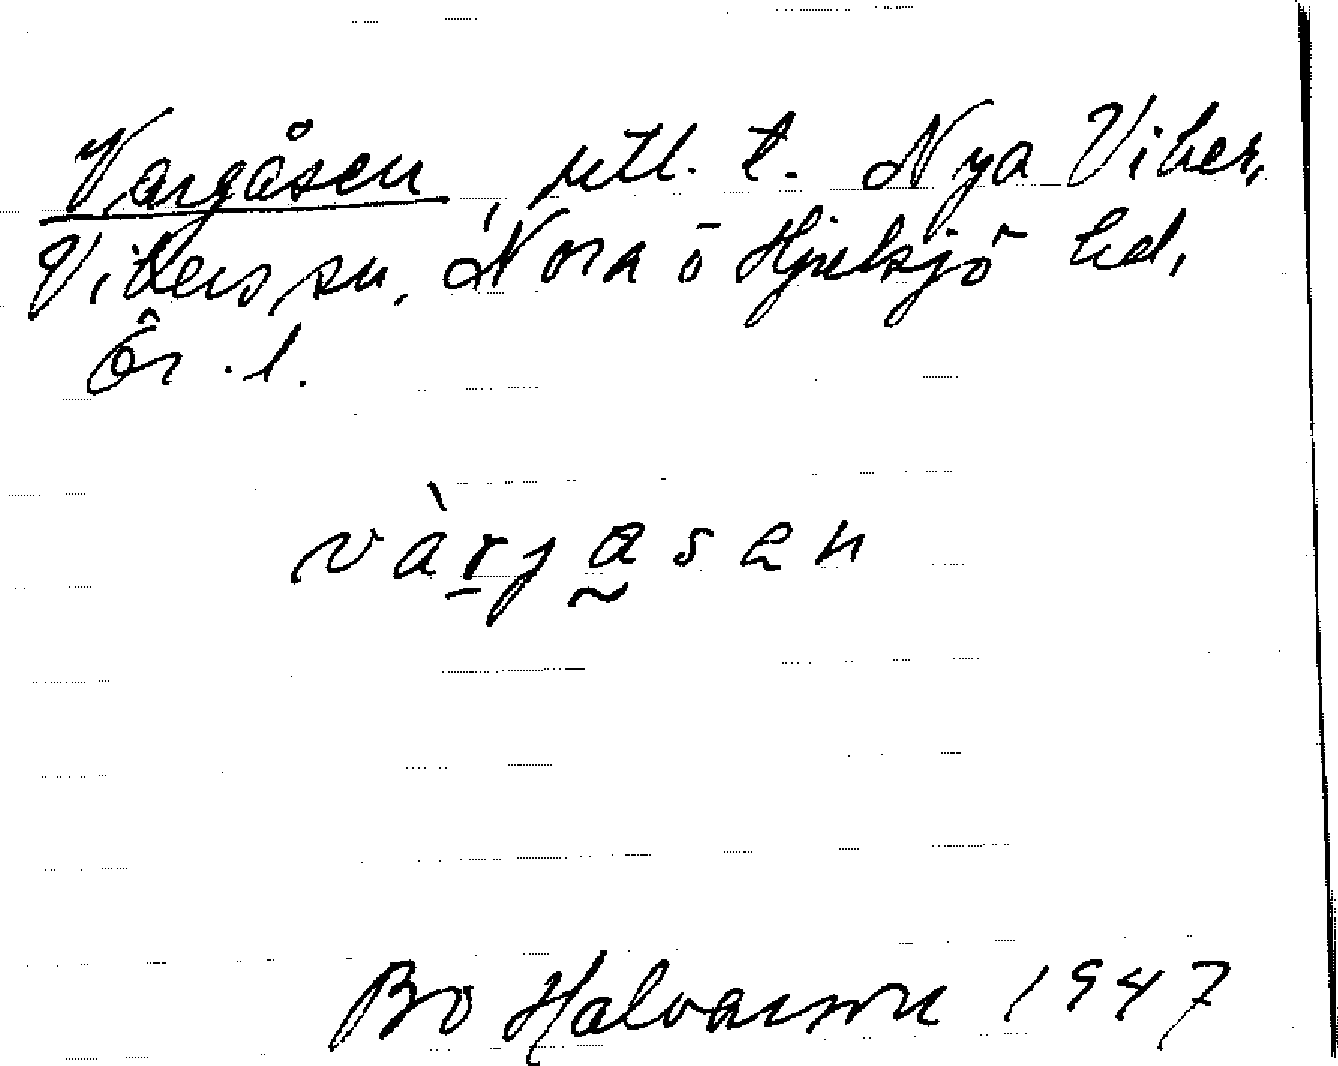 Vargåsen, utl. t. Nya Viker,
Vikers sn, Nora o Hjulsjö hd,
Ör. l.
vàrgasen
Bo Halvarson 1947